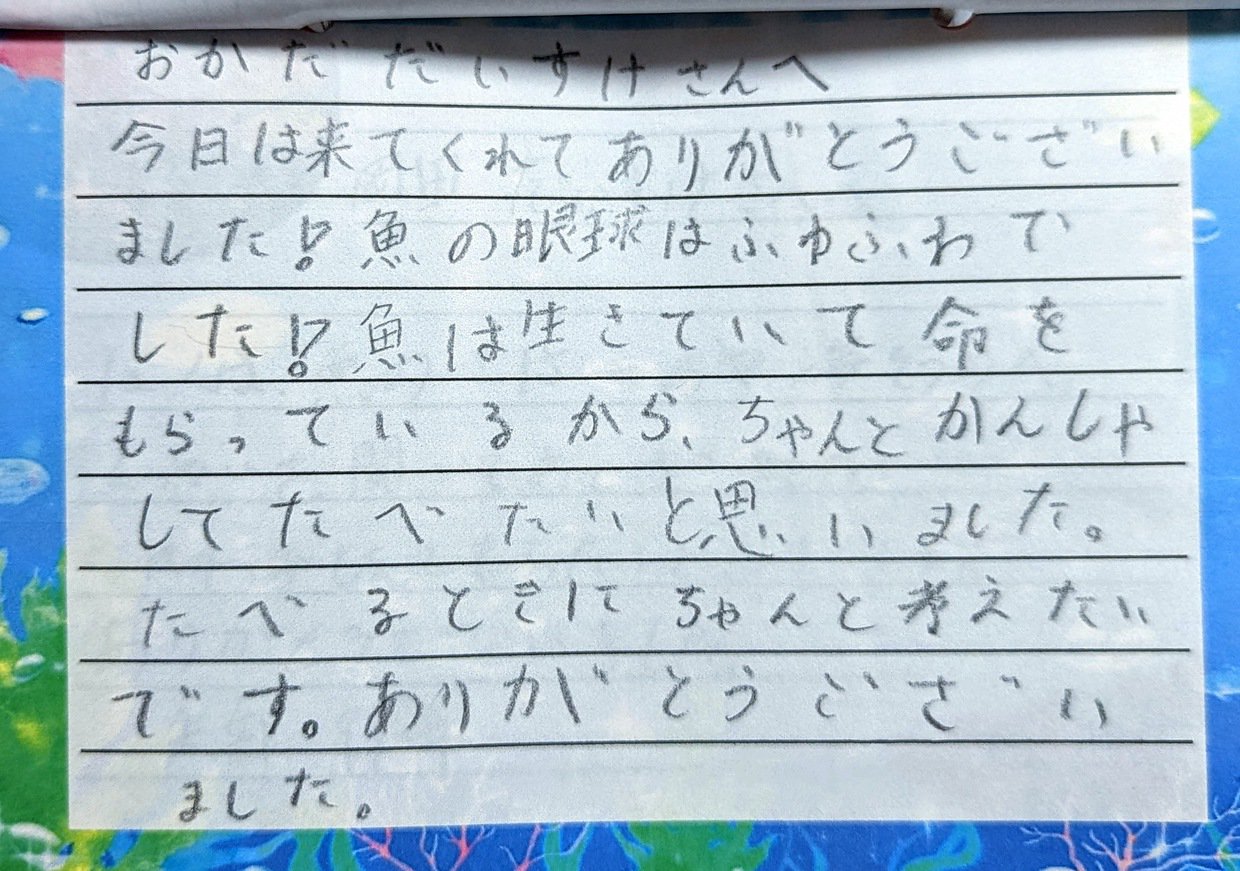 おかだだいすけさんへ
今日は来てくれてありがとうござい
ました！魚の眼球はふゆふわで
した！魚は生きていて命を
もらっているから、ちゃんとかんしゃ
してたべたいと思いました。
たべるときにちゃんと考えたい
です。ありがとうござい
ました。